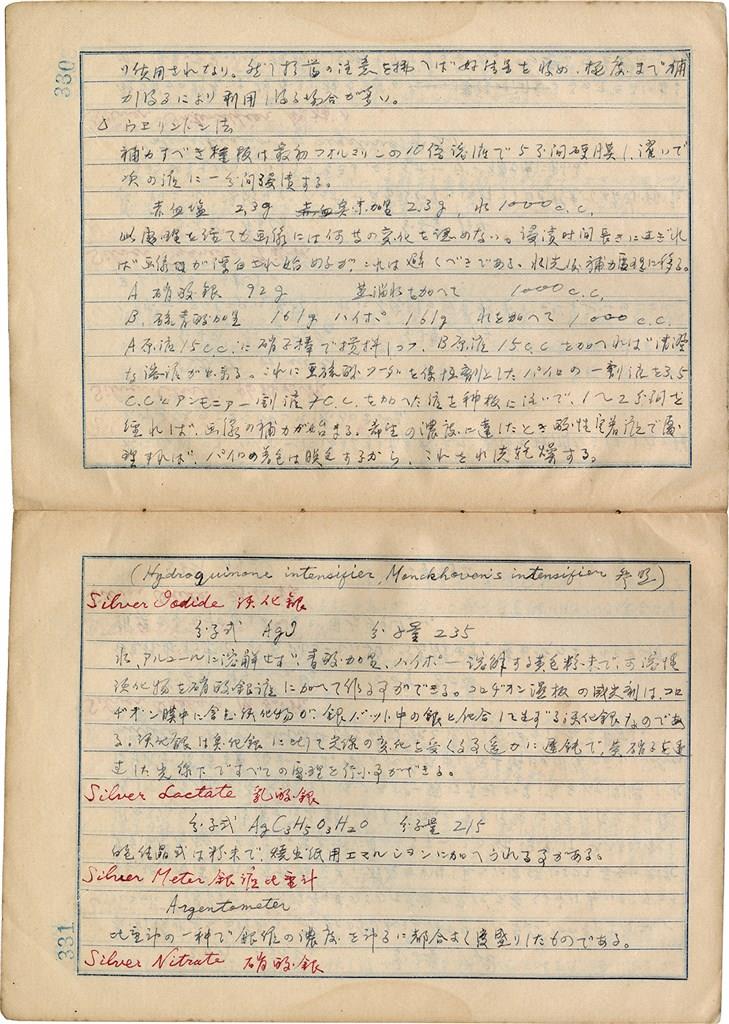 330
り使用されなり。然し打着の注意を拂へば好結果を収め、極度まで補
力し得るにより利用し得る場合が多い。
ウエリントン法
補力すべき種板は最初フオルマリンの10倍溶液で5分間硬膜し、濯いで
次の液に一分間浸漬する。
赤血塩 2.3g 臭素加里 2.3g, 水 1000c.c.
此處理を經ても画像には何等の変化を認めない。浸漬時間長きにすぎれ
ば画像が漂白され始めるが、これは避くべきである。水洗後補力處理に移る。
A 硝酸銀 92g 蒸溜水を加へて 1000c.c.
B. 硫青酸加里 161g ハイポ 161g 水を加へて 1000c.c.
A原液15c.c.に硝子棒で撹拌しつつ、B原液15c.cを加へれば清澄
な溶液が出来る。これに亜硫酸ソーダを保恒剤としたパイロの一割液を3.5
c.c.とアンモニア一割液7c.c.を加へた液を種板に注いで、1〜2分間を
經れば、画像の補力が始まる。希望の濃度に達したとき酸性定着液で處
理すれば、パイロの着色は脱色するから、これを水洗乾燥する。
(Hydroquinone intensifier, Monckhoven's intensifier 参照)
Silver Iodide 沃化銀
分子式 AgI 分子量 235
水、アルコールに溶解せず、青酸加里、ハイポーに溶解する黄色粉末で、可溶性
沃化物を硝酸銀液に加へて作る事ができる。コロヂオン湿板の感光剤は、コロ
ヂオン膜中に含む沃化物が、銀バット中の銀と化合して生ずる沃化銀なのであ
る。沃化銀は臭化銀に比して光線の変化を受くる事遥かに遅鈍で、黄硝子を通
過した光線下ですべての處理を行ふ事ができる。
Silver Lactate 乳酸銀
分子式 AgC3H5O3H2O 分子量 215
白色結晶或は粉末で、焼出紙用エマルションに加へられる事がある。
Silver Meter 銀液比重計
Argentometer
比重計の一種で銀液の濃度を計るに都合よく度盛りしたものである。
331
Silver Nitrate 硝酸銀